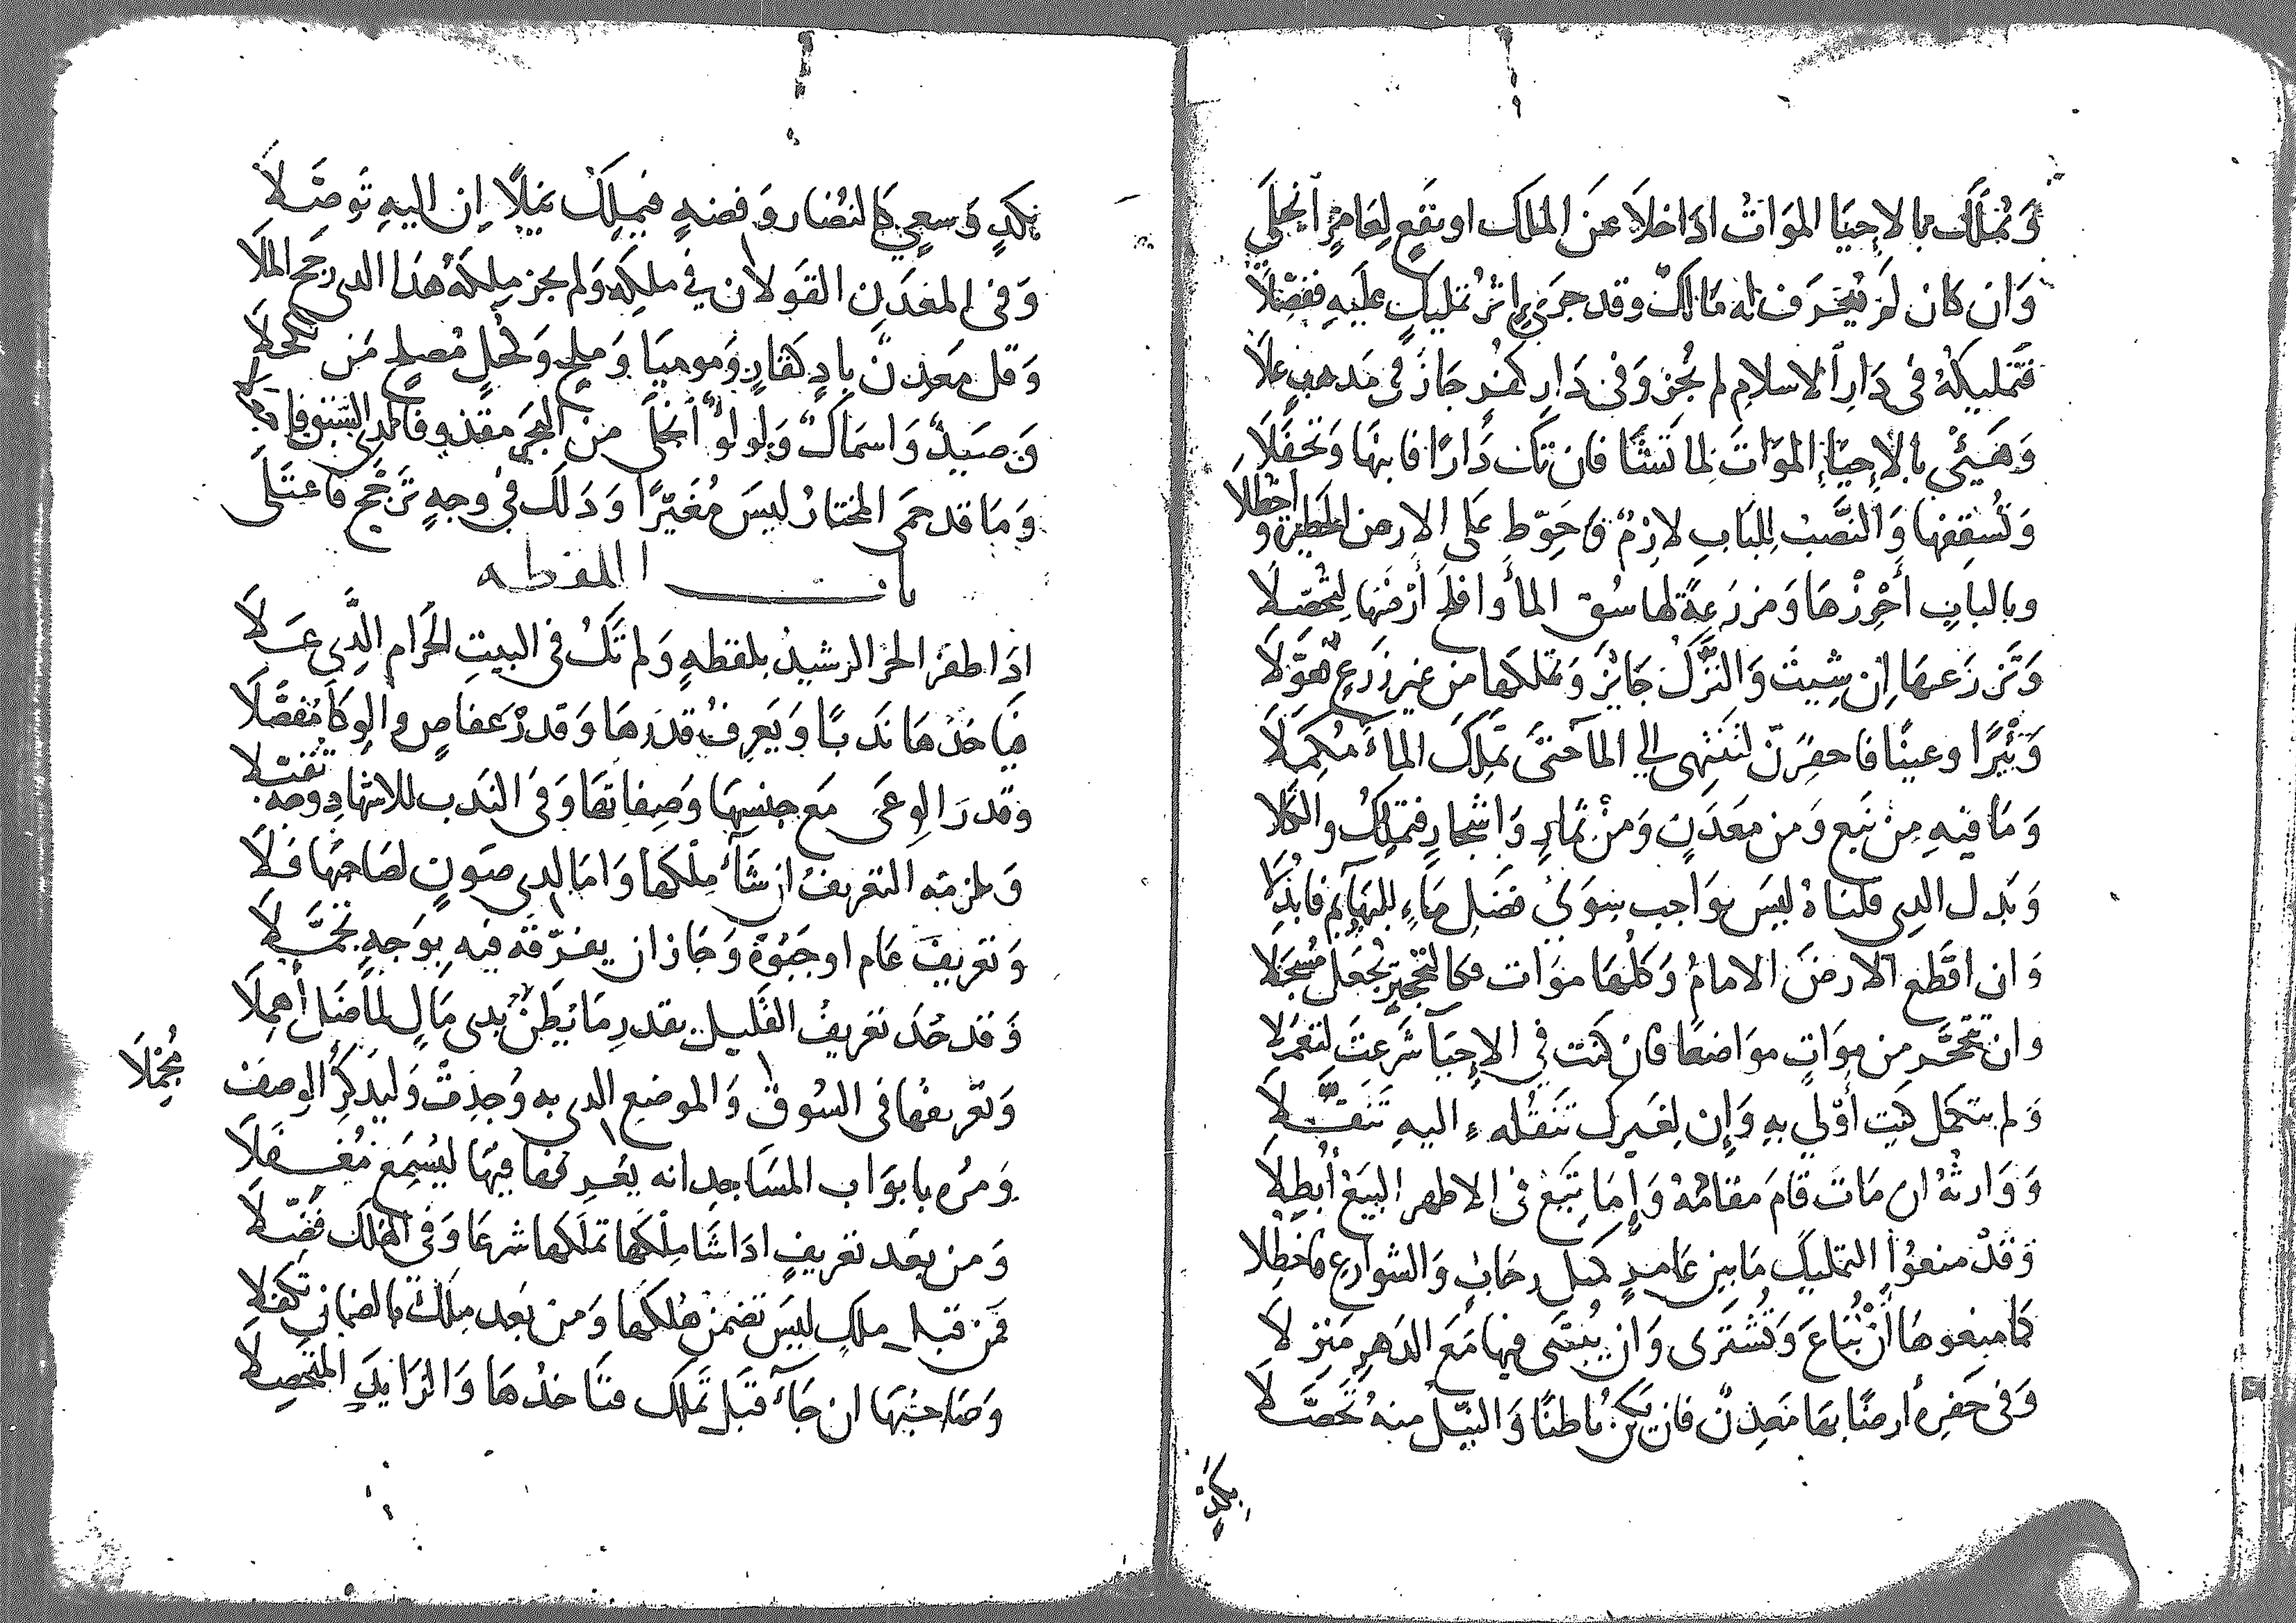 وَتُملَك بالاحِيَا الموَاتُ اذَا خلَا عَن الملك او نقَعٍ لِعَامِرٍ انجلَي
وَان كانَ لَم يُعرَف له مَالكٌ وقد جَرَى اثرُ تمليكٍ عليهِ ففصّلَا
فتَمليكهُ في دَارِ الاسلامِ لم يجُز وَفي دَارِ كفرٍ جَازَ في مَذهبٍ علَا
وَهَيّئ بالاحِيَا الموَاتَ لما تَشَا فان تكُ دَارًا فابنهَا وَتحَفّلَا
وَتُسقِفهَا وَالنَّصبُ للبَابِ لازِمٌ وَحَوّط على الارض الحظيرة وَاحظلَا
وبالباب أحرِزهَا وَمزرَعةً لها سُق المأ وَاقلَ أرضَهَا لتُحصّلَا
وَتَزرَعهَا إن شِيتَ وَالتَّركُ جَائزٌ وَتملكهَا من غيرِ زَرَعٍ تحوّلَا
وَبئيرًا وعينًا فاحفرَنّ لتَنتهى الي المآ حتىَ تملكَ الماءَ مُكمَلَا
وَمَا فيهِ من نَبع وَمن مَعدَنٍ وَمن ثمَارٍ وَاشجارٍ فتملِكُ والكَلَا
وَبَذل الذي قلناهُ ليسَ بوَاجب سِوَى فضَل مَاءٍ للبهَايم فابذلَا
وَان اقطَع الارضَ الامامُ وَكلهَا موَات فكالتحجير يُجعَل مُسجَلَا
وان تتحجَّر من موَاتٍ موَاضعًا فان كنتَ في الاحِيَا شَرعتَ لتعمَلَا
وَلم يتكمل كنتَ أوّلي بهِ وَإن لغَيرك تَنقُلهُ اليهِ تَنَقّلَا
وَوَارثُهُ ان مَاتَ قامَ مقامَهُ وَإمَا تَبع في الاظهر البيَع أبُطِلَا
وَقَدْ منعُوا التمليكَ مَا بين عَامرٍ كمثل رحَابٍ وَالشوارع فاحظلَا
كما منعوهَا أن تُبَاعَ وَتُشتَرى وَان يُبتنَى فيها مَعَ الدَهرِ مَنزلَا
وَفي حَفرِه أرضًا بهَا مَعدِنٌ فان يكن بُاطنًا وَالنَيّلُ منهُ تحَصّلَا
بكدٍ
بكدٍ وَسعيٍ كالنُضَار وَفضهٍ فيملِكُ نيلًا إن اليهِ تَوصّلَا
وَفي المَعَدنِ القَولان في ملكِه وَلم يجز ملكَهُ هذا الذى رجّح الملَا
وَقل مَعدَنٌ بادٍ كقارٍ وَموميَا وَملحٍ وَكُحلٍ مُصلحٍ مَن تكحلَا
وَصَيدٌ وَاسمَاكٌ وَلولوٌ انجلَى من البَحر مقذوفا لدى السَبق
وَمَا قد حمَى المختارُ ليسَ مُغيّرًا وَذَلكَ في وَجهٍ ترَجّح فاعتلَى
باب اللقطه
اذَا ظفرَ الحرُ الرشيدُ بلقطهٍ وَلم تَكُ في البيتِ الحَرام الّذي عَلَا
فيَاخذُهَا نَدبًا وَيَعرِفُ قدرَهَا وَقدرْ عفاصٍ والوِكَا مُفصّلَا
وَقدرَ الوِعَى مَع جنسِهَا وَصِفاتهَا وَفي النَدب للاشهادِ وَجه تقبلا
وَيلزمَه التعريفُ ان شَآءَ مِلكهَا وَامَا لدى صَونٍ لصَاحبهَا فَلَا
وَتعريفَ عَام اوجَبُوهُ وَجَازَ ان يفرّقَه فيه بوَجهٍ تجمّلَا
وَقد حُدَ تعريفُ القَليل بقدرِ مَا يَظنُ بذى مَالٍ لماضَل أهملَا
وَتعريفُهَا في السُوق وَالموضعِ الذى به وُجدَتْ وَليَذكُرِ الوصفَ مُجمِلَا
وَمُره بابوَاب المسَاجد انه يُعَرِفهَا فيهَا ليُسمعَ مُغفلَا
وَمن بعَد تعريفٍ اذَا شَا مِلكهَا تملَكهَا شرعًا وَفي الهُلكِ فَصّلَا
فمَن قبل ملكٍ ليسَ تضمن هُلكهَا وَمن بَعد مِلكٍ بالضمان تكفلَا
وَصَاحبُهَا ان جَآءَ قبَل تملّك فتَاخذُهَا وَالزَايدَ المتحصلَا